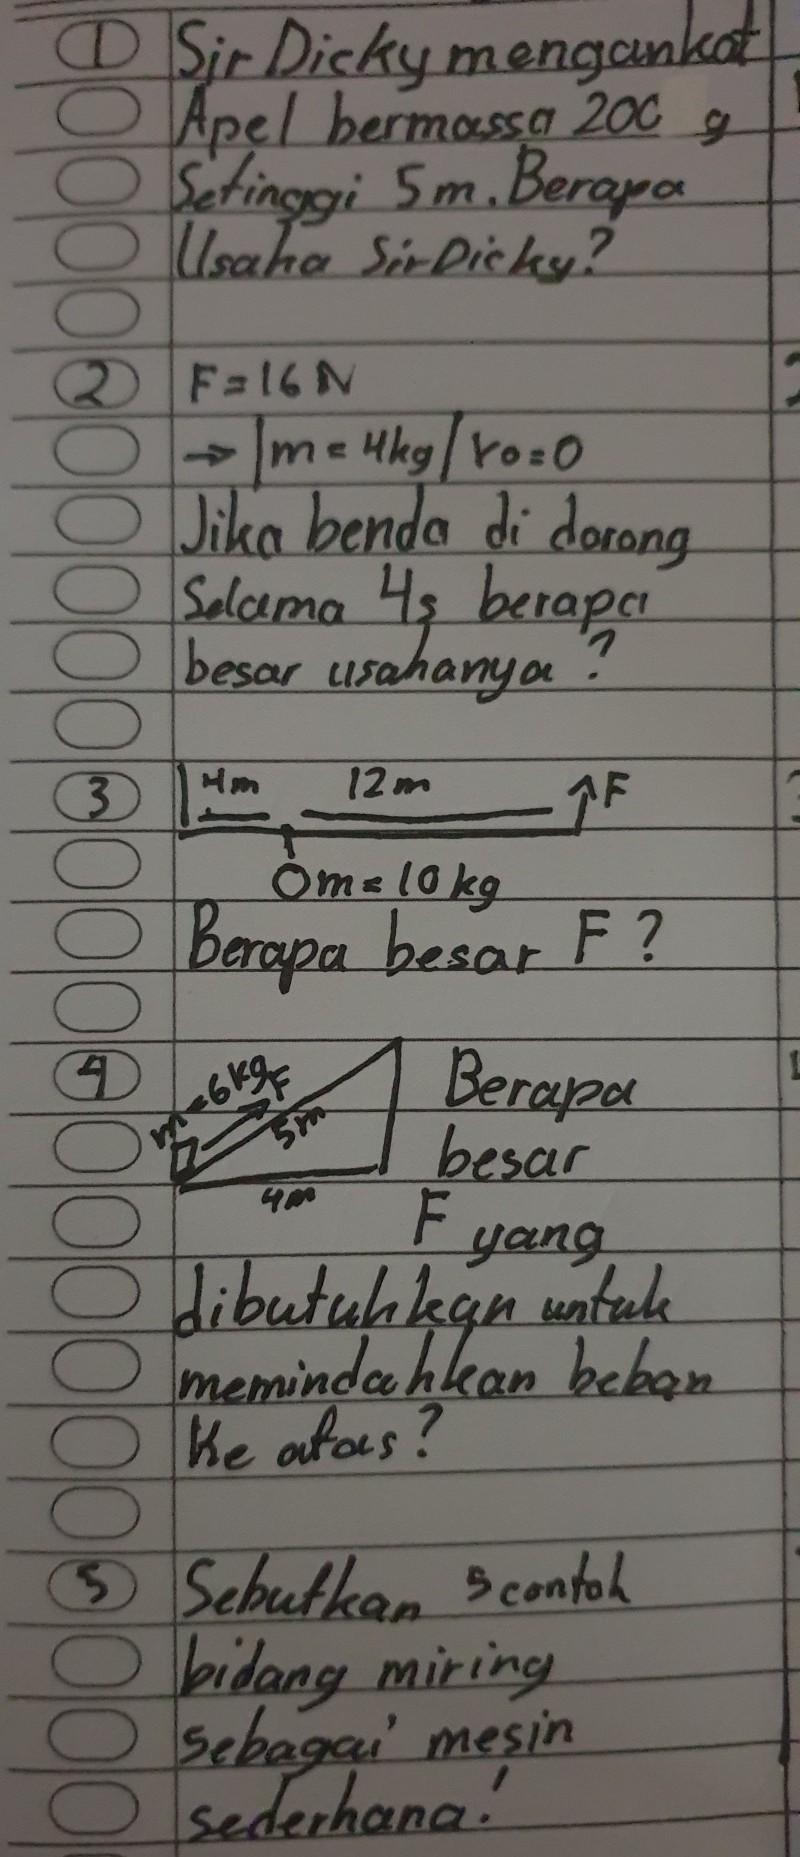 1 Sir Dicky mengankat
Apel bermassa 200 g
Setinggi 5 m. Berapa
Usaha Sir Dicky?
2 F = 16 N
→ |m = 4 kg| Vo = 0
Jika benda di dorong
Selama 4s berapa
besar usahanya?
3 4m 12m ↑F
m = 10 kg
Berapa besar F?
4 m = 6 kg F 5m 4m Berapa
besar
F yang
dibutuhkan untuk
memindahkan beban
Ke atas?
5 Sebutkan 5 contoh
bidang miring
sebagai mesin
sederhana!